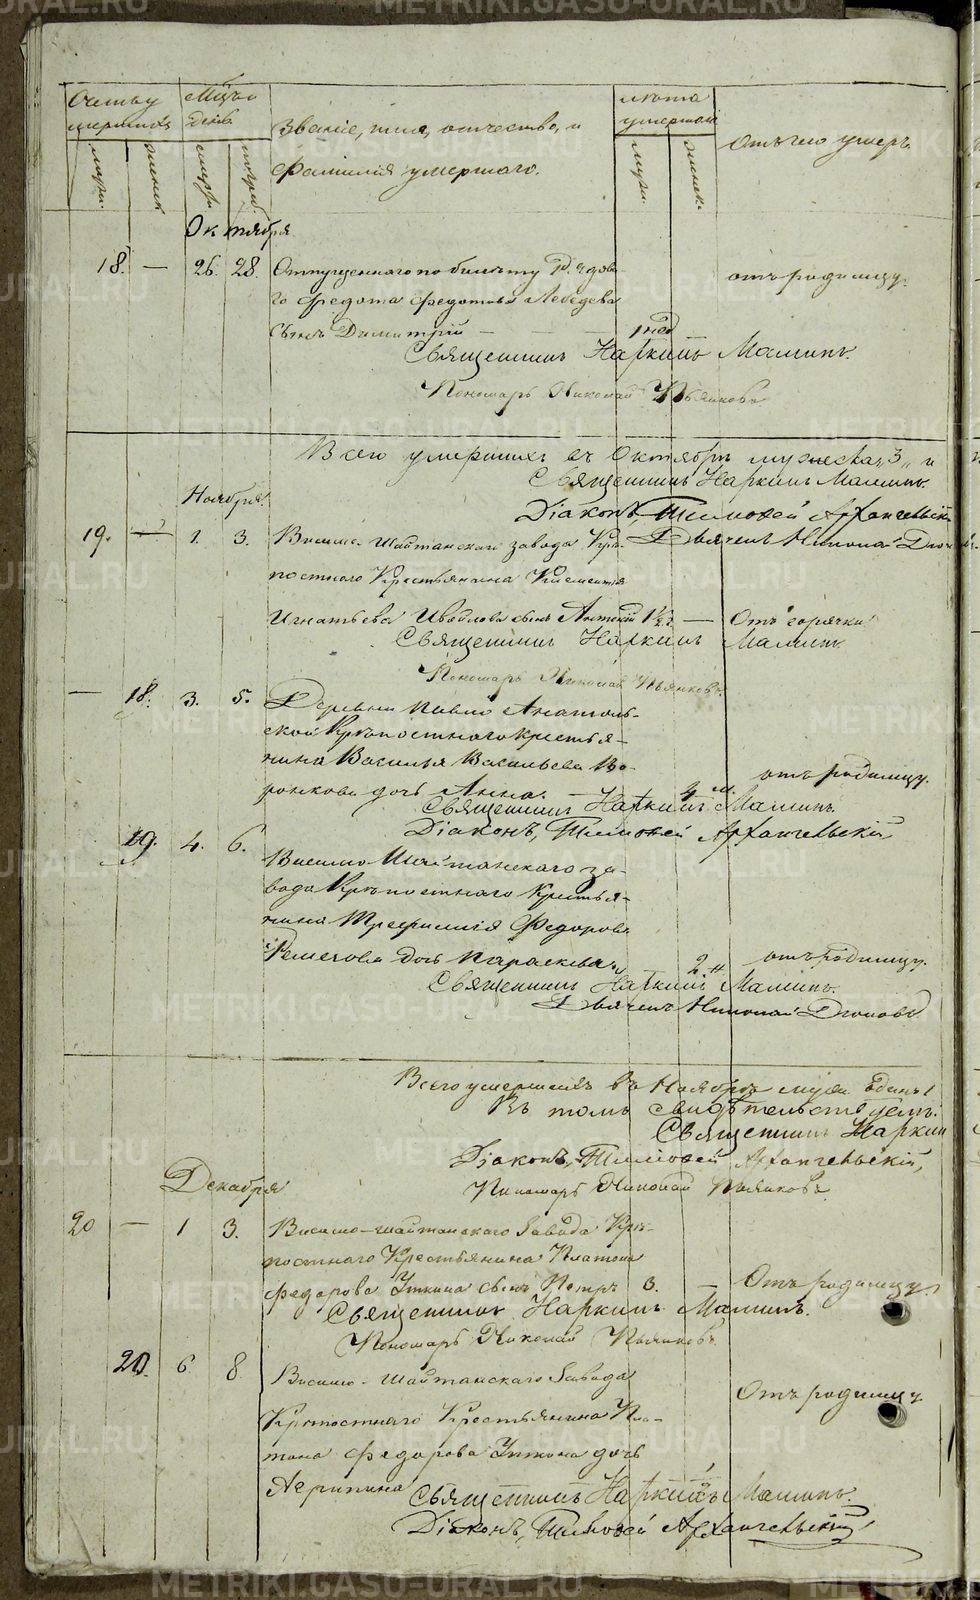 Счетъ умершихъ
Мцъ и день
Званіе, имя, отчество, и фамилія умершаго.
лѣта умершаго
отъ чего умеръ.
муж.
женск.
смер.
погреб.
муж.
женск.
Октября
18. — 26. 28. Отпущеннаго по билету Рядова-
го Федота Федотова Лебедева
сынъ Димитрій — 1 нед отъ родимцу.
Священникъ Наркиссъ Маминъ.
Пономарь Николай Пьянковъ
Всего умершихъ въ Октябрѣ мужеска 3, и
Священникъ Наркиссъ Маминъ.
Діаконъ, Тимофей Архангельскій
Дьячекъ Николай
Ноября
19. — 1. 3. Висимо-Шайтанскаго завода Крѣ-
постнаго Крестьянина Климентія
Игнатьева сынъ 1½ — Отъ горячки
Священникъ Наркиссъ Маминъ.
Пономарь Николай Пьянковъ.
— 18. 3. 5. Деревни Павло Анатоль-
ской Крѣпостнаго крестья-
нина Василья Васильева Во-
ронкова дочь Анна. — 4 м. отъ родимцу.
Священникъ Наркиссъ Маминъ.
Діаконъ, Тимофей Архангельскій
19. 4. 6. Висимо Шайтанскаго за-
вода Крѣпостнаго Крестья-
нина Федорова
дочь Параскева 2 н отъ родимцу.
Священникъ Наркиссъ Маминъ.
Дьячекъ Николай
Всего умершихъ въ Ноябрѣ муж. Единъ 1
Въ томъ свидѣтельствуемъ:
Священникъ Наркис
Діаконъ, Тимофей Архангельскій,
Пономарь Николай Пьянковъ.
Декабря
20 — 1 3. Висимо-шайтанскаго Завода Крѣ-
постнаго Крестьянина Платона
Федорова Уткина сынъ Петръ 3. — Отъ родимцу
Священникъ Наркиссъ Маминъ.
Пономарь Николай Пьянковъ.
20. 6 8 Висимо-Шайтанскаго Завода
Крѣпостнаго Крестьянина Пла-
тона Федорова Уткина дочь
Агрипина Отъ родимцу
Священникъ Наркиссъ Маминъ.
Діаконъ, Тимофей Архангельскій,
METRIKI.GASO-URAL.RU